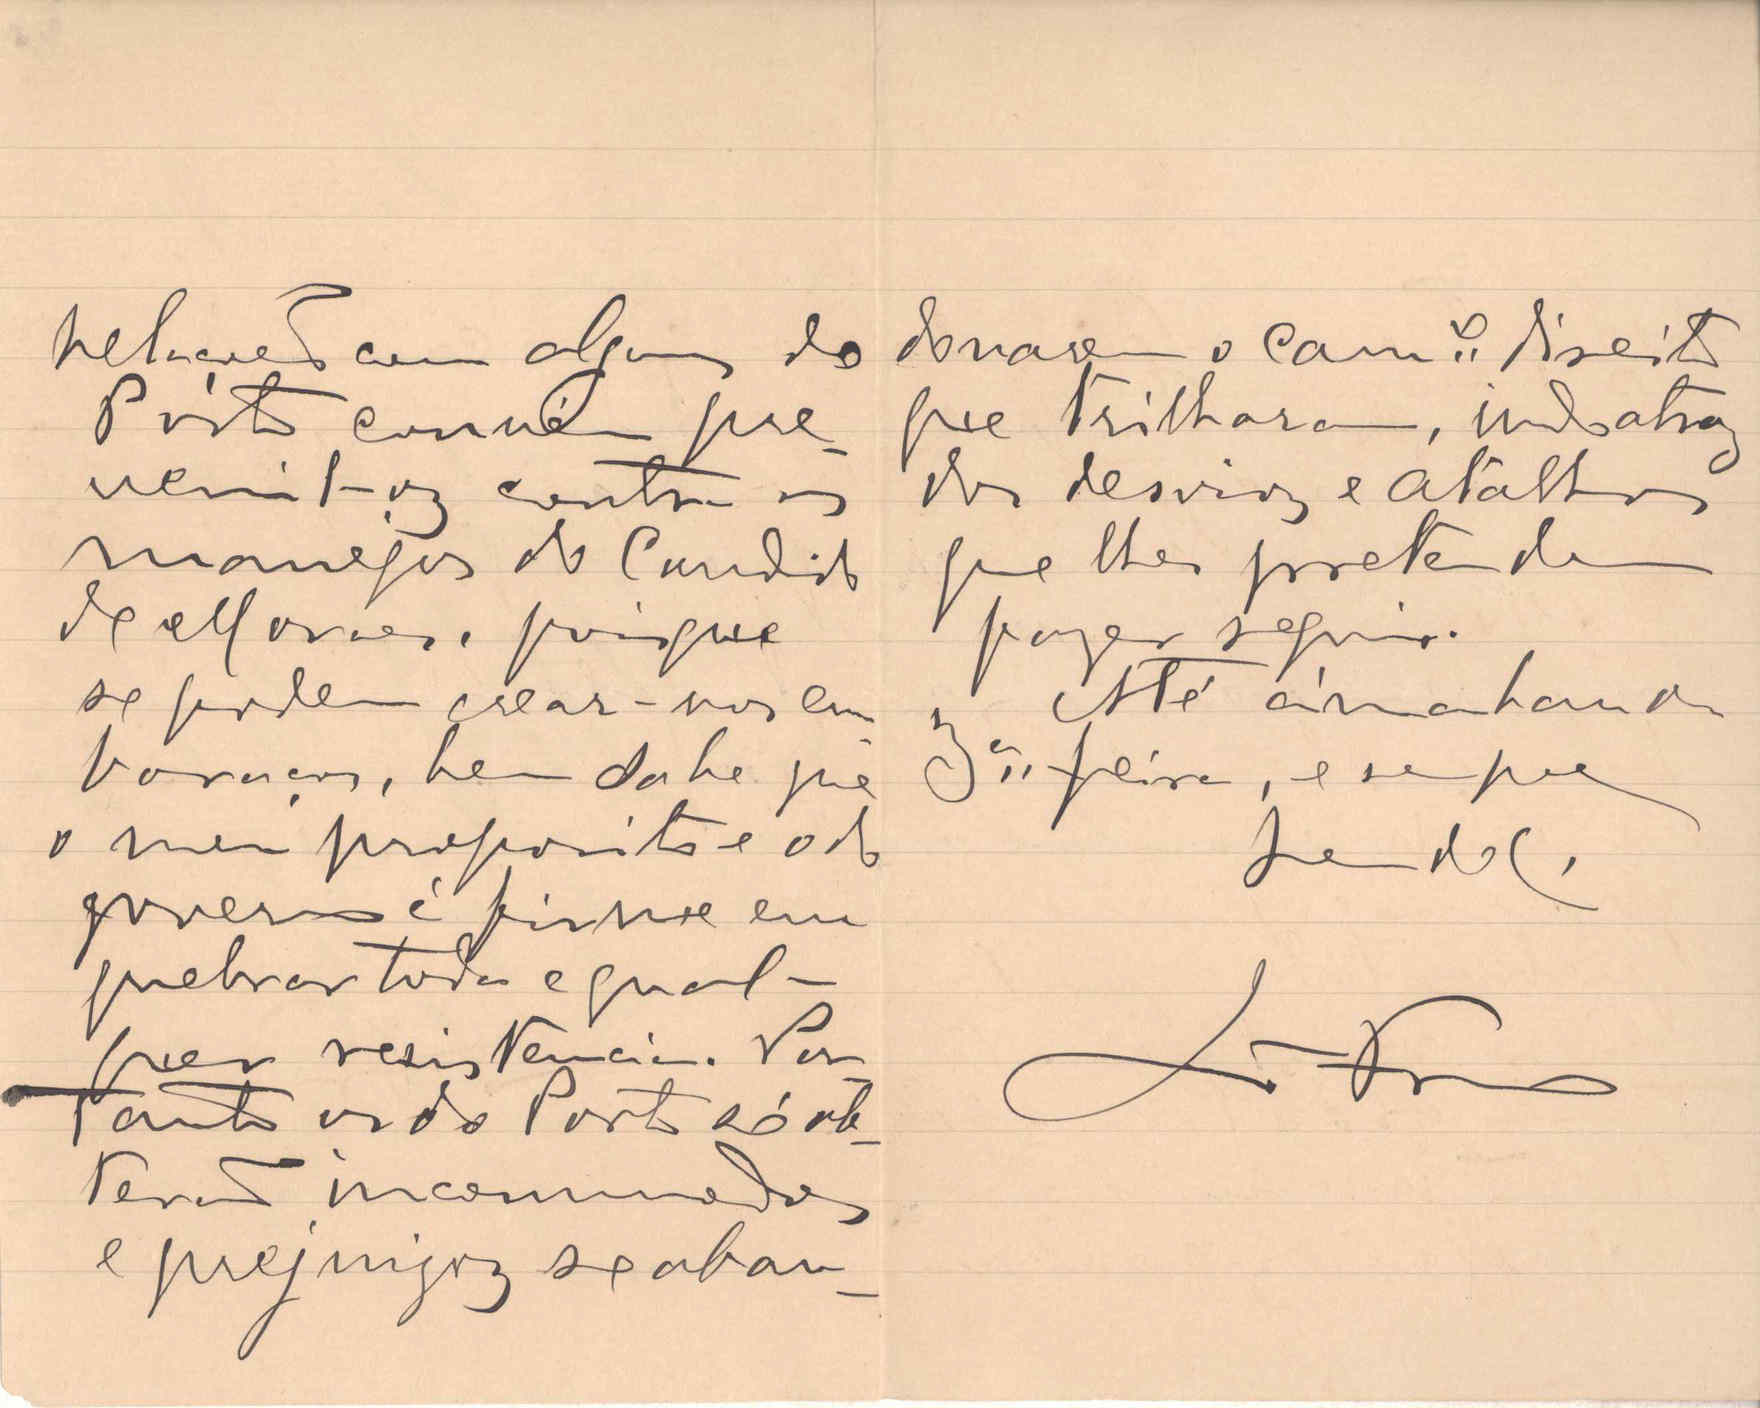 relações com alguns do
Pôrto convém pre-
venil-oz contra os
manejos do Candido
de Moraes, poisque
se podem crear-nos em
baraços, bem sabe que
o meu proposito e o do
governo é firme em
quebrar toda e qual-
quer resistencia. Por
tanto os do Porto só ob-
terão incommodos
e prejuizoz se aban-
donarem o camº direito
que trilharam, indo atraz
dos desvioz e atalhos
que lhes pretendem
fazer seguir.
Até ámanhan ou
3ª feira, e sempre